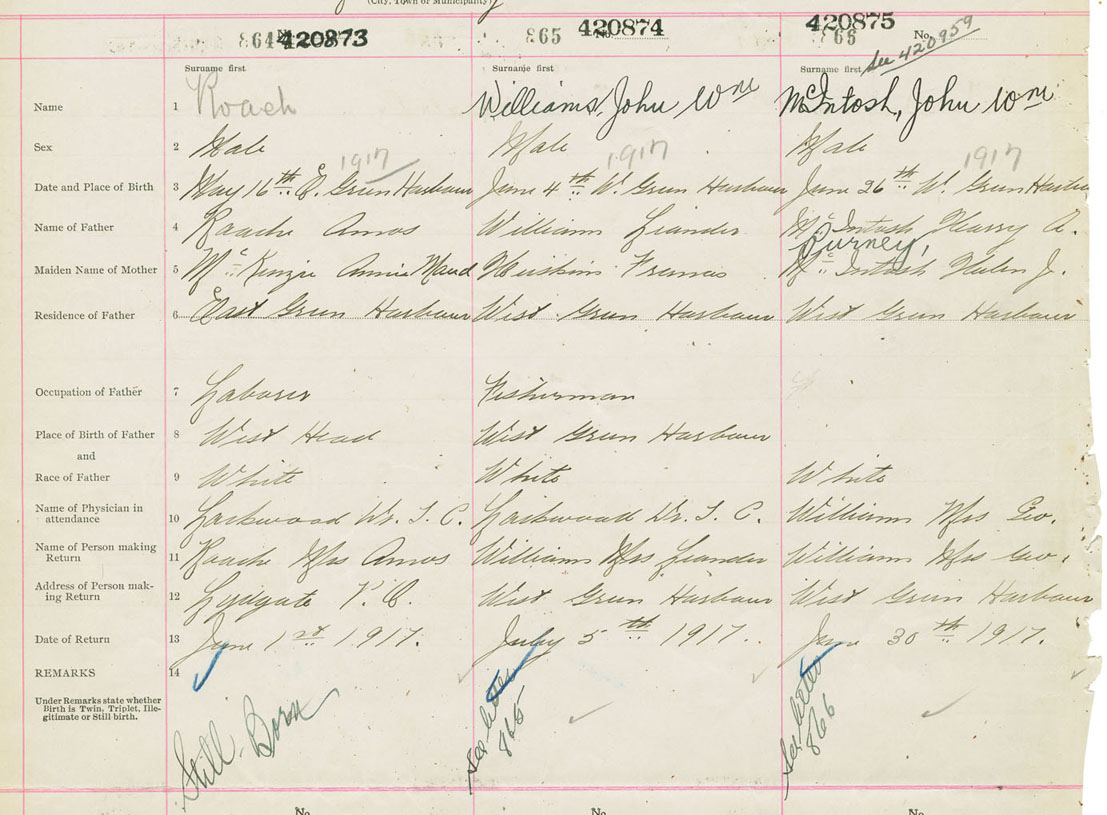 (City, Town or Municipality)
864 420873 865 No. 420874 420875 866 No. See 420959
Surname first Surname first Surname first
Name 1 Roach Williams, John Wm McIntosh, John Wm
Sex 2 Male Male Male
1917 1917 1917
Date and Place of Birth 3 May 16th E. Green Harbour June 4th W. Green Harbour June 26th W. Green Harbour
Name of Father 4 Roache Amos Williams Leander McIntosh Harry A.
Purney,
Maiden Name of Mother 5 McKenzie Annie Maud Huskins Frances McIntosh Helen J.
Residence of Father 6 East Green Harbour West Green Harbour West Green Harbour
Occupation of Father 7 Laborer Fisherman
Place of Birth of Father 8 West Head West Green Harbour
and
Race of Father 9 White White White
Name of Physician in
attendance 10 Lockwood Dr. T. C. Lockwood Dr. T. C. Williams Mrs Geo.
Name of Person making
Return 11 Roache Mrs Amos Williams Mrs Leander Williams Mrs Geo.
Address of Person mak-
ing Return 12 Lydgate P.O. West Green Harbour West Green Harbour
Date of Return 13 June 1st 1917. July 5th 1917.. June 30th 1917.
REMARKS 14
Under Remarks state whether
Birth is Twin, Triplet, Ille-
gitimate or Still birth.
Still Born
See letter
865
See letter
866
No. No. No.